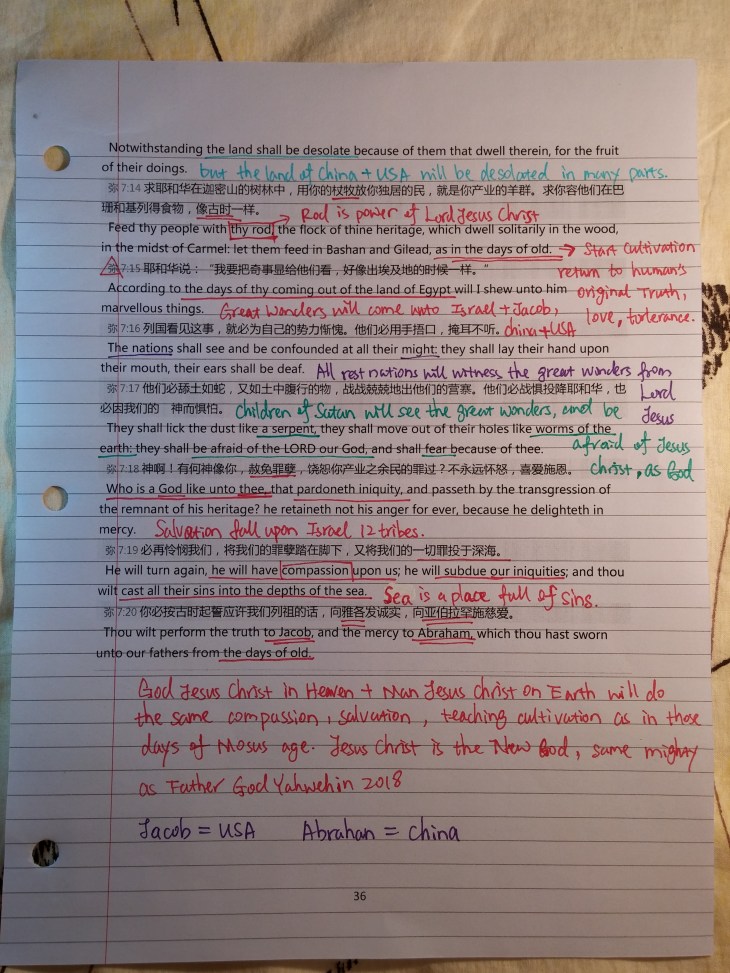 Notwithstanding the land shall be desolate because of them that dwell therein, for the fruit
of their doings. but the land of China + USA will be desolated in many parts.
弥 7:14 求耶和华在迦密山的树林中，用你的杖牧放你独居的民，就是你产业的羊群。求你容他们在巴
珊和基列得食物，像古时一样。 → Rod is power of Lord Jesus Christ
Feed thy people with thy rod, the flock of thine heritage, which dwell solitarily in the wood,
in the midst of Carmel: let them feed in Bashan and Gilead, as in the days of old. → Start Cultivation
弥 7:15 耶和华说：“我要把奇事显给他们看，好像出埃及地的时候一样。” return to human's
According to the days of thy coming out of the land of Egypt will I shew unto him original Truth,
marvellous things. Great wonders will come unto Israel + Jacob, love, torlerance.
弥 7:16 列国看见这事，就必为自己的势力惭愧。他们必用手捂口，掩耳不听。 china + USA
The nations shall see and be confounded at all their might: they shall lay their hand upon
their mouth, their ears shall be deaf. All rest nations will witness the great wonders from
弥 7:17 他们必舔土如蛇，又如土中腹行的物，战战兢兢地出他们的营寨。他们必战惧投降耶和华，也 Lord
必因我们的 神而惧怕。 Children of Satan will see the great wonders, and be Jesus
They shall lick the dust like a serpent, they shall move out of their holes like worms of the
earth: they shall be afraid of the LORD our God, and shall fear because of thee. afraid of Jesus
弥 7:18 神啊！有何神像你，赦免罪孽，饶恕你产业之余民的罪过？不永远怀怒，喜爱施恩。 christ, as God
Who is a God like unto thee, that pardoneth iniquity, and passeth by the transgression of
the remnant of his heritage? he retaineth not his anger for ever, because he delighteth in
mercy. Salvation fall upon Israel 12 tribes.
弥 7:19 必再怜悯我们，将我们的罪孽踏在脚下，又将我们的一切罪投于深海。
He will turn again, he will have compassion upon us; he will subdue our iniquities; and thou
wilt cast all their sins into the depths of the sea. Sea is a place full of sins.
弥 7:20 你必按古时起誓应许我们列祖的话，向雅各发诚实，向亚伯拉罕施慈爱。
Thou wilt perform the truth to Jacob, and the mercy to Abraham, which thou hast sworn
unto our fathers from the days of old.
God Jesus Christ in Heaven + Man Jesus Christ on Earth will do
the same compassion, salvation, teaching cultivation as in those
days of Mosus age. Jesus Christ is the New God, same mighty
as Father God Yahweh in 2018
Jacob = USA Abrahan = china
36